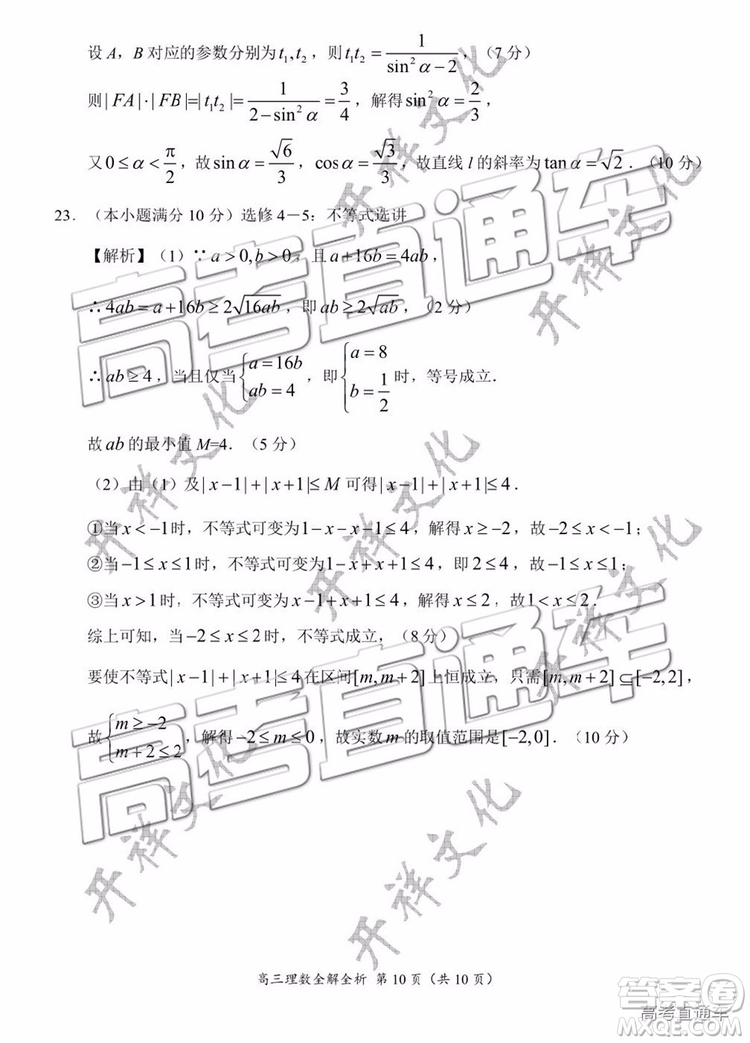 设 A，B 对应的参数分别为 t₁,t₂，则 t₁t₂ = 1/(sin²α−2)，（7 分）
则|FA|·|FB|=|t₁t₂|= 1/(2−sin²α) = 3/4，解得 sin²α = 2/3，
又 0≤α<π/2，故 sinα = √6/3，cosα = √3/3，故直线 l 的斜率为 tanα=√2．（10 分）
23．（本小题满分 10 分）选修 4－5：不等式选讲
【解析】（1）∵a>0,b>0，且 a+16b=4ab，
∴4ab=a+16b≥2√(16ab)，即 ab≥2√(ab)，（2 分）
∴ab≥4，当且仅当{a=16b, ab=4，即{a=8, b=1/2 时，等号成立．
故 ab 的最小值 M=4．（5 分）
（2）由（1）及|x−1|+|x+1|≤M 可得|x−1|+|x+1|≤4．
①当 x<−1时，不等式可变为1−x−x−1≤4，解得 x≥−2，故−2≤x<−1；
②当−1≤x≤1时，不等式可变为1−x+x+1≤4，即 2≤4，故−1≤x≤1；
③当 x>1时，不等式可变为 x−1+x+1≤4，解得 x≤2，故1<x≤2．
综上可知，当−2≤x≤2时，不等式成立，（8 分）
要使不等式|x−1|+|x+1|≤4在区间[m,m+2]上恒成立，只需[m,m+2]⊆[−2,2]，
故{m≥−2, m+2≤2，解得−2≤m≤0，故实数 m 的取值范围是[−2,0]．（10 分）
高三理数全解全析 第 10 页（共 10 页）
高考直通车
高考直通车
开祥文化
开祥文化
开祥文化
开祥文化
开祥文化
开祥文化
答案圈
高考直通车
MXQE.COM